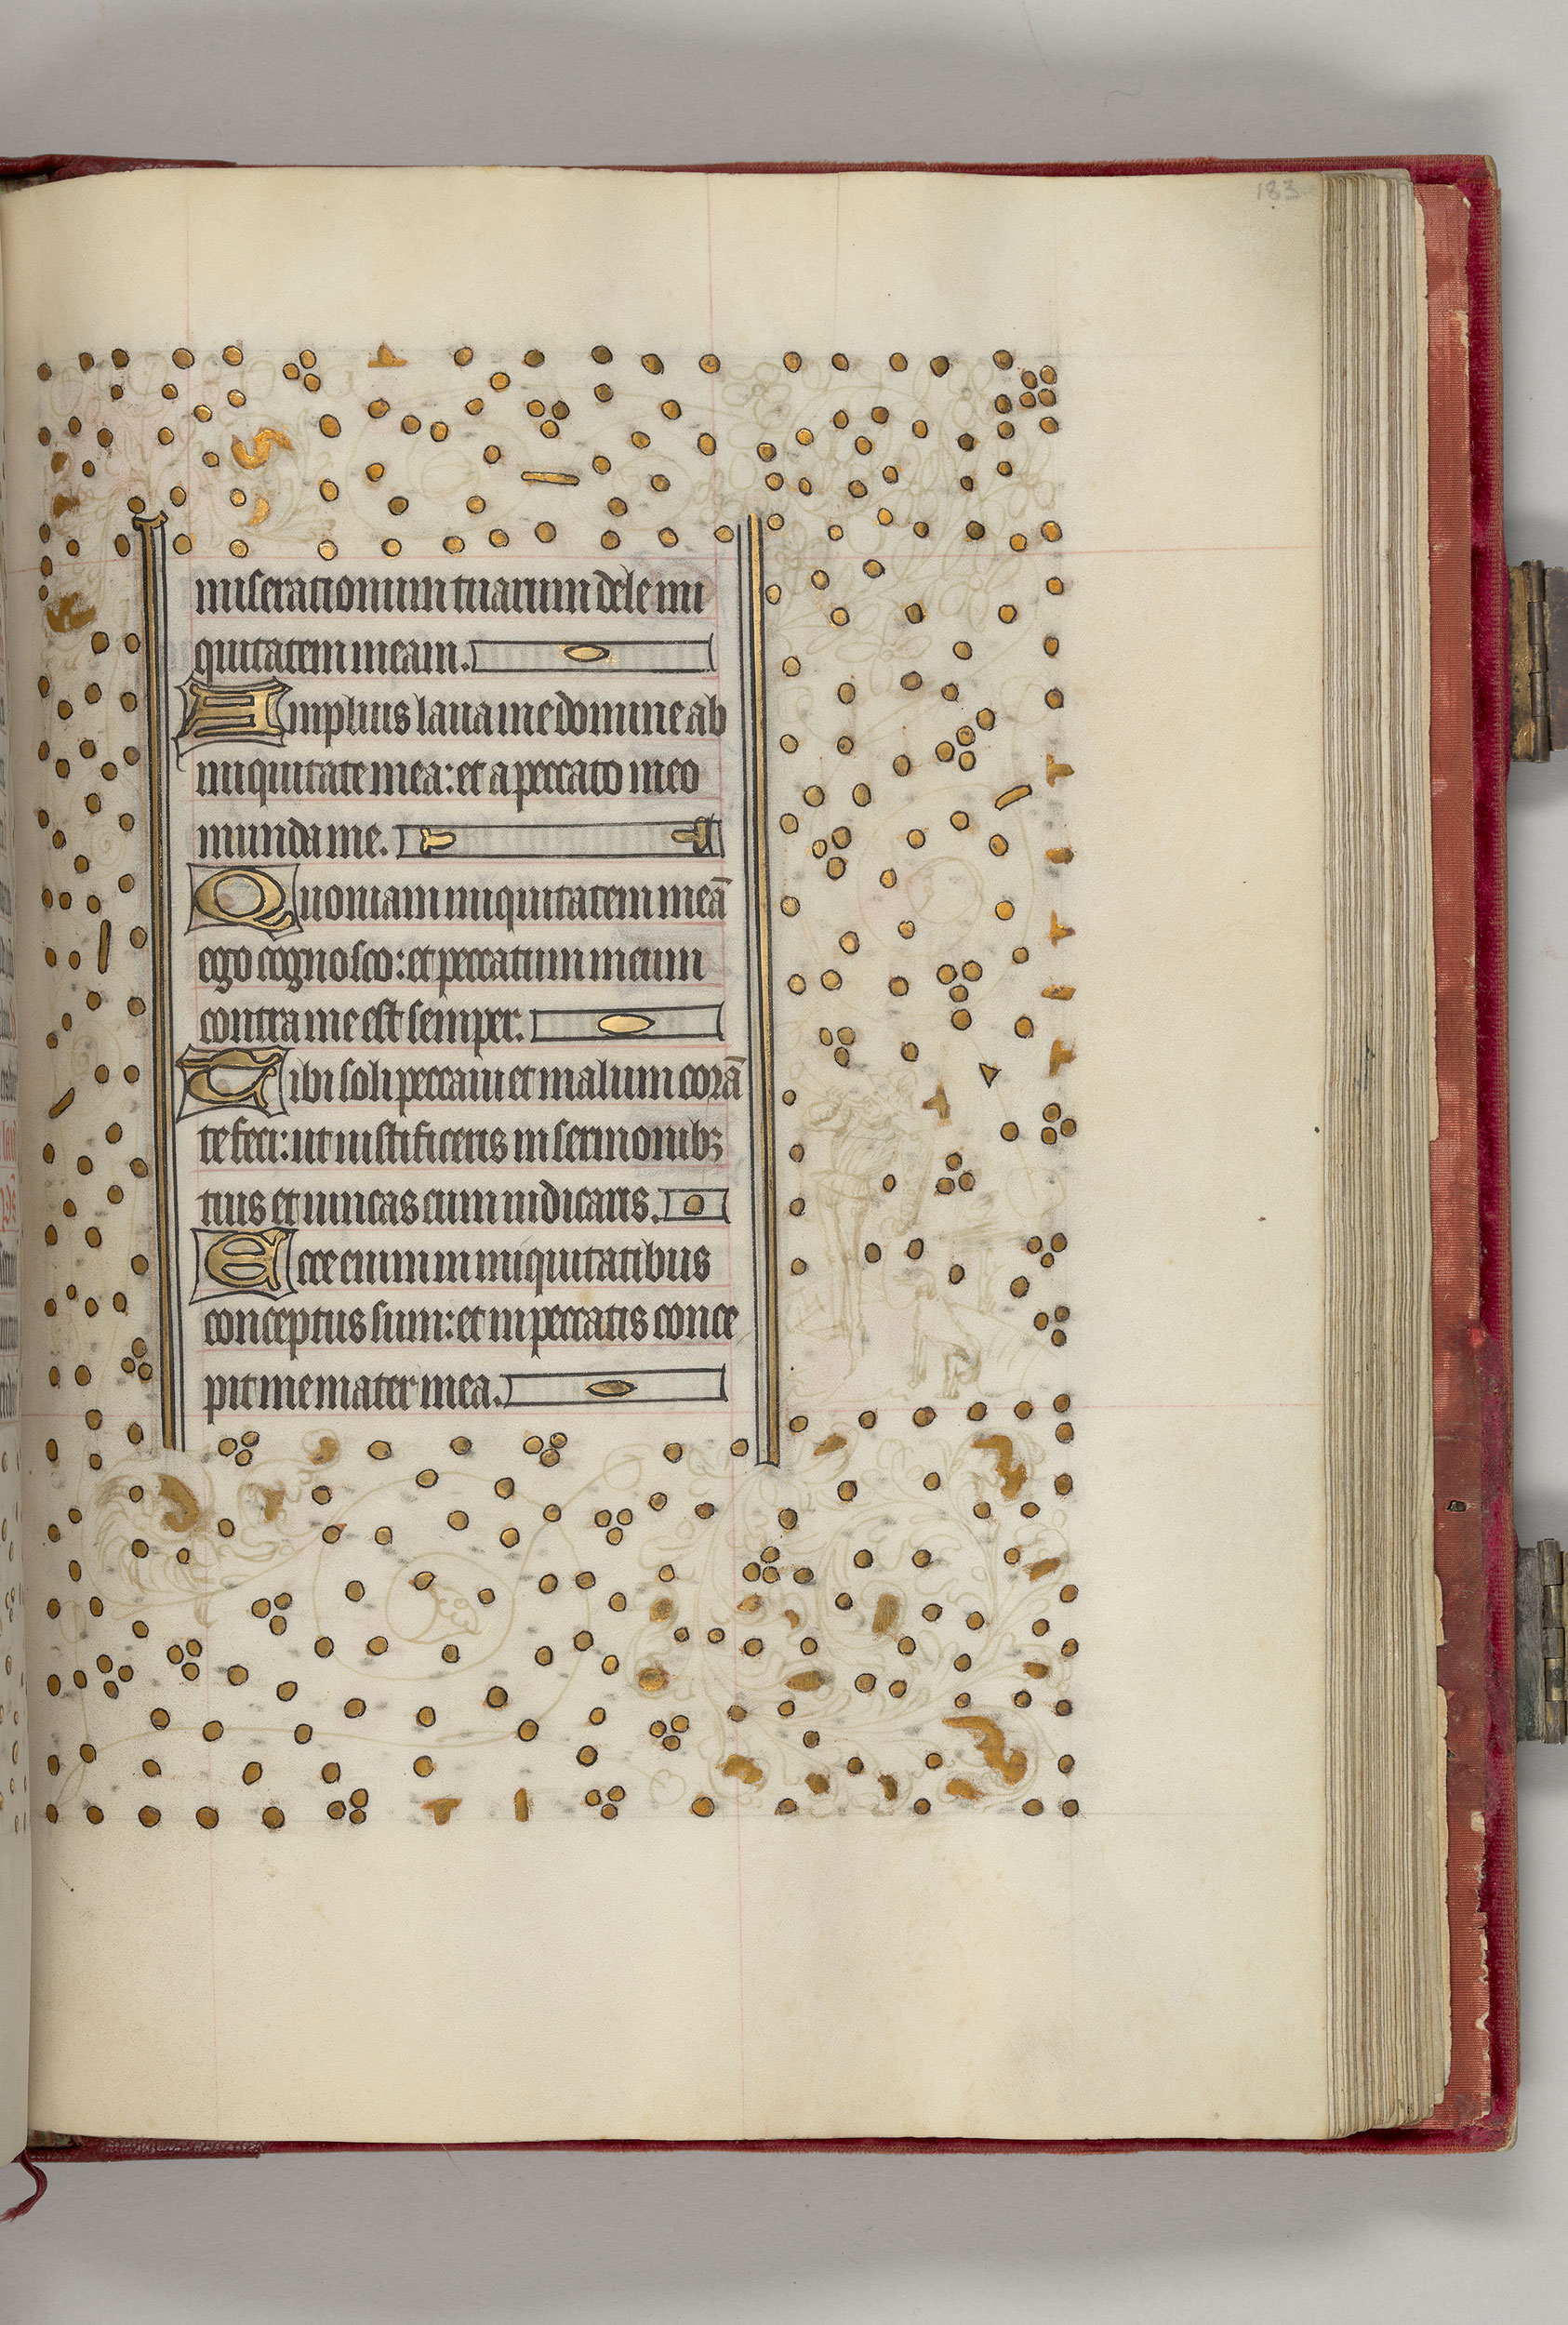 183
miserationum tuarum dele ini
quitatem meam.
Amplius laua me domine ab
iniquitate mea: et a peccato meo
munda me.
Quoniam iniquitatem meā
ego cognosco: et peccatum meum
contra me est semper.
Tibi soli peccaui et malum corā
te feci: ut iustificeris in sermonibꝫ
tuis et uincas cum iudicaris.
Ecce enim in iniquitatibus
conceptus sum: et in peccatis conce
pit me mater mea.